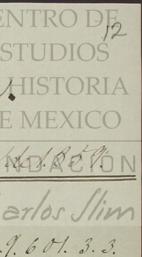 12
ENTRO DE
STUDIOS
HISTORIA
E MEXICO
NDACION
arlos Slim
9.601.3.3.